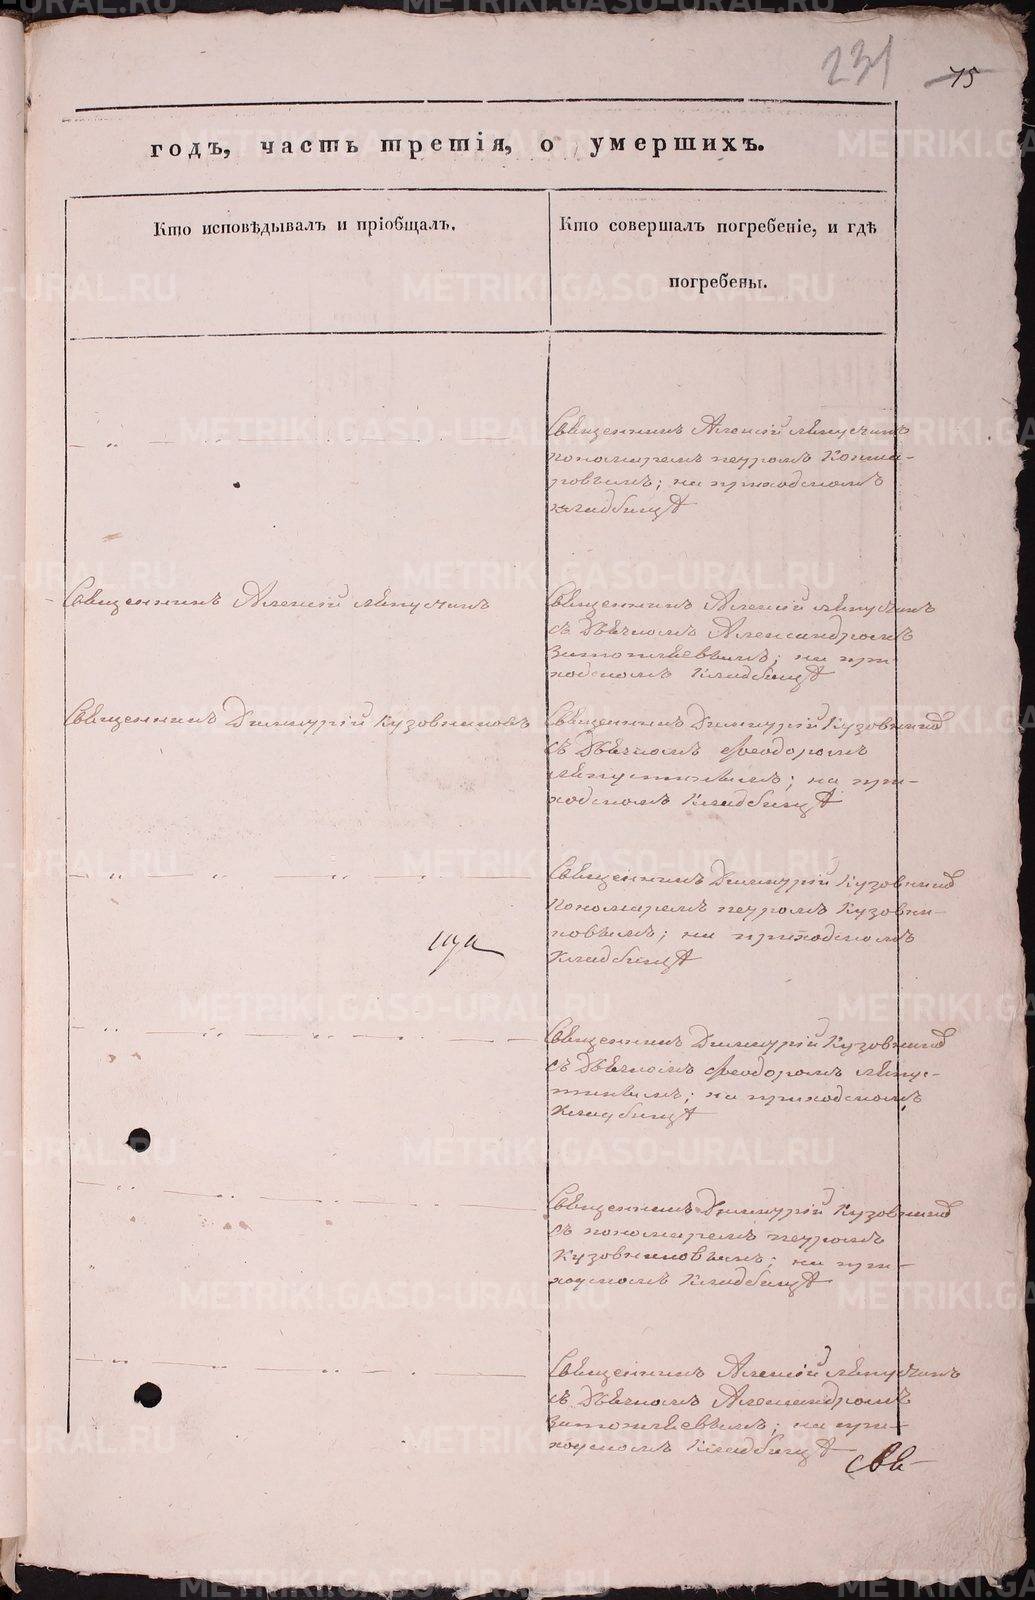 231 75
годъ, часть третія, о умершихъ.
Кто исповѣдывалъ и пріобщалъ.
Кто совершалъ погребеніе, и гдѣ
погребены.
Священникъ Алексій
пономаремъ петромъ
на приходскомъ
кладбищѣ
Священникъ Алексій
Священникъ Алексій
съ Дьячкомъ Александромъ
на при-
ходскомъ Кладбищѣ
Священникъ Димитрій Кузовниковъ
Священникъ Димитрій Кузовников
съ Дьячкомъ Феодоромъ
на при-
ходскомъ Кладбищѣ
Священникъ Димитрій Кузовников
Пономаремъ петромъ Кузовни-
ковымъ; на приходскомъ
Кладбищѣ
Священникъ Димитрій Кузовников
съ Дьячкомъ Феодоромъ
на приходскомъ
Кладбищѣ
Священникъ Димитрій Кузовников
съ пономаремъ петромъ
Кузовниковымъ; на при-
ходскомъ Кладбищѣ
Священникъ Алексій
съ Дьячкомъ Александромъ
на при-
ходскомъ Кладбищѣ
METRIKI.GASO-URAL.RU